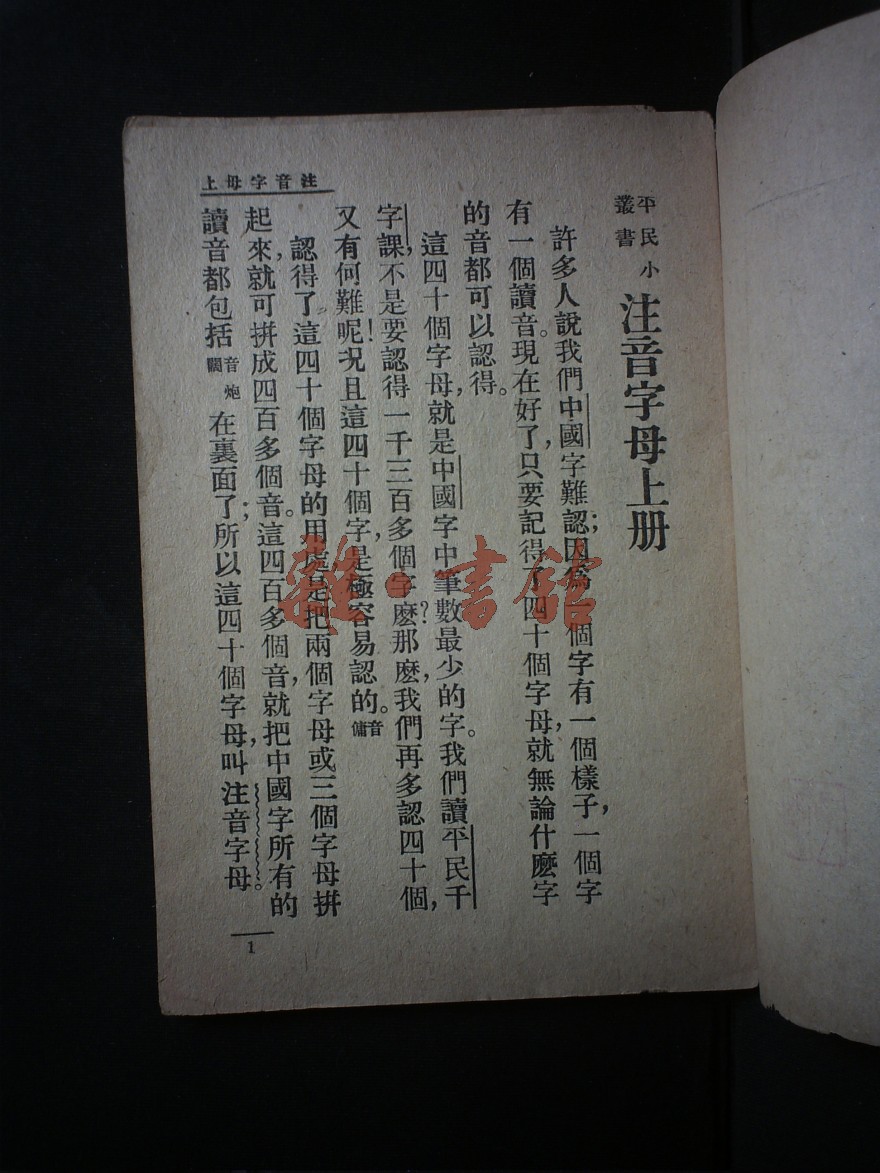 平民小
叢書
注音字母上册
許多人說我們中國字難認;因爲一個字有一個樣子,一個字
有一個讀音。現在好了,只要記得了四十個字母,就無論什麽字
的音都可以認得。
這四十個字母,就是中國字中筆數最少的字。我們讀平民千
字課,不是要認得一千三百多個字麽?那麽,我們再多認四十個,
又有何難呢!况且這四十個字,是極容易認的。音傭
認得了這四十個字母的用處是把兩個字母或三個字母拼
起來,就可拼成四百多個音。這四百多個音,就把中國字所有的
讀音都包括音炮闊在裏面了;所以這四十個字母,叫注音字母。
注音字母上
1
雜·書館